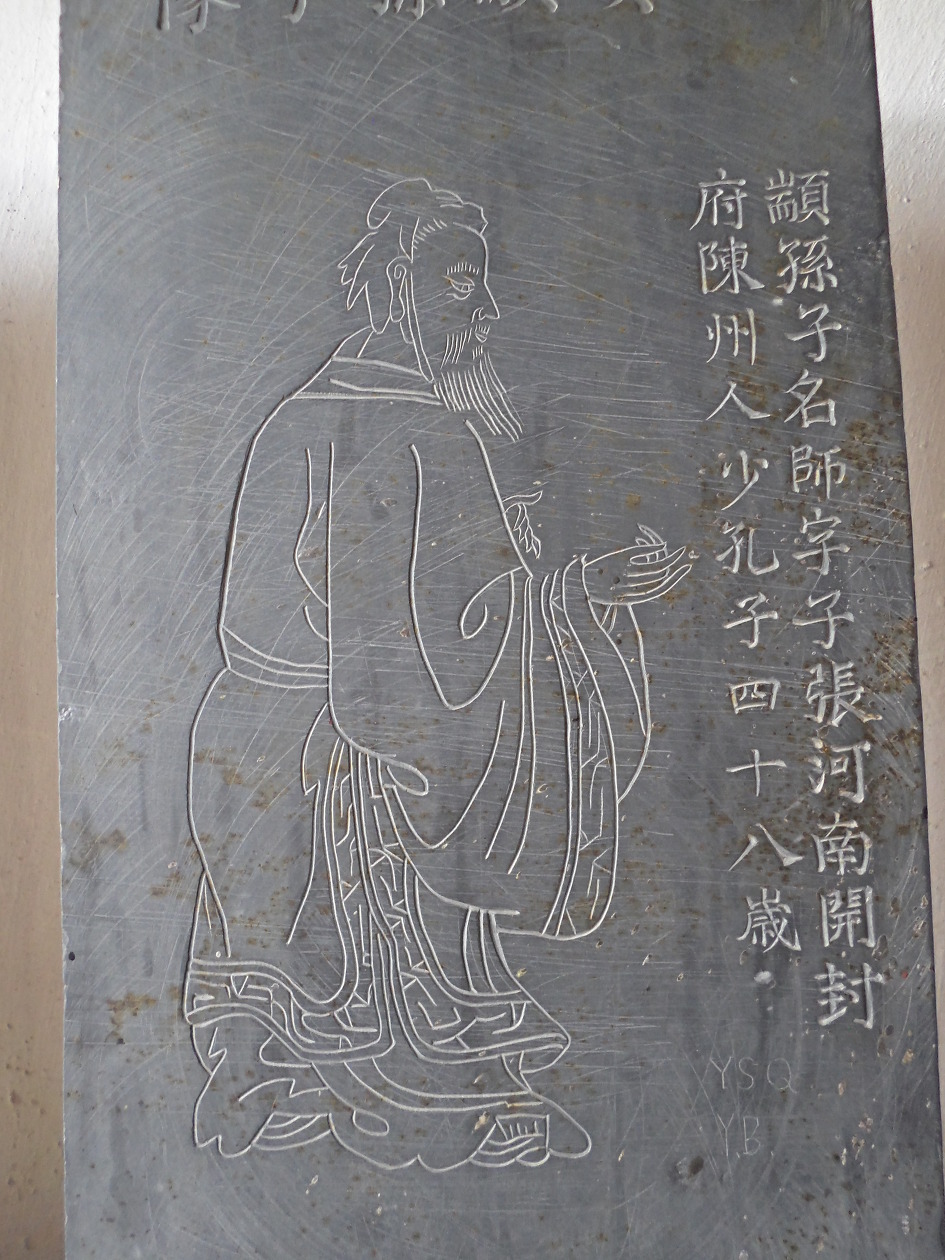 顓孫子名師字子張河南開封
府陳州人少孔子四十八歲
YSQ
Y.B.